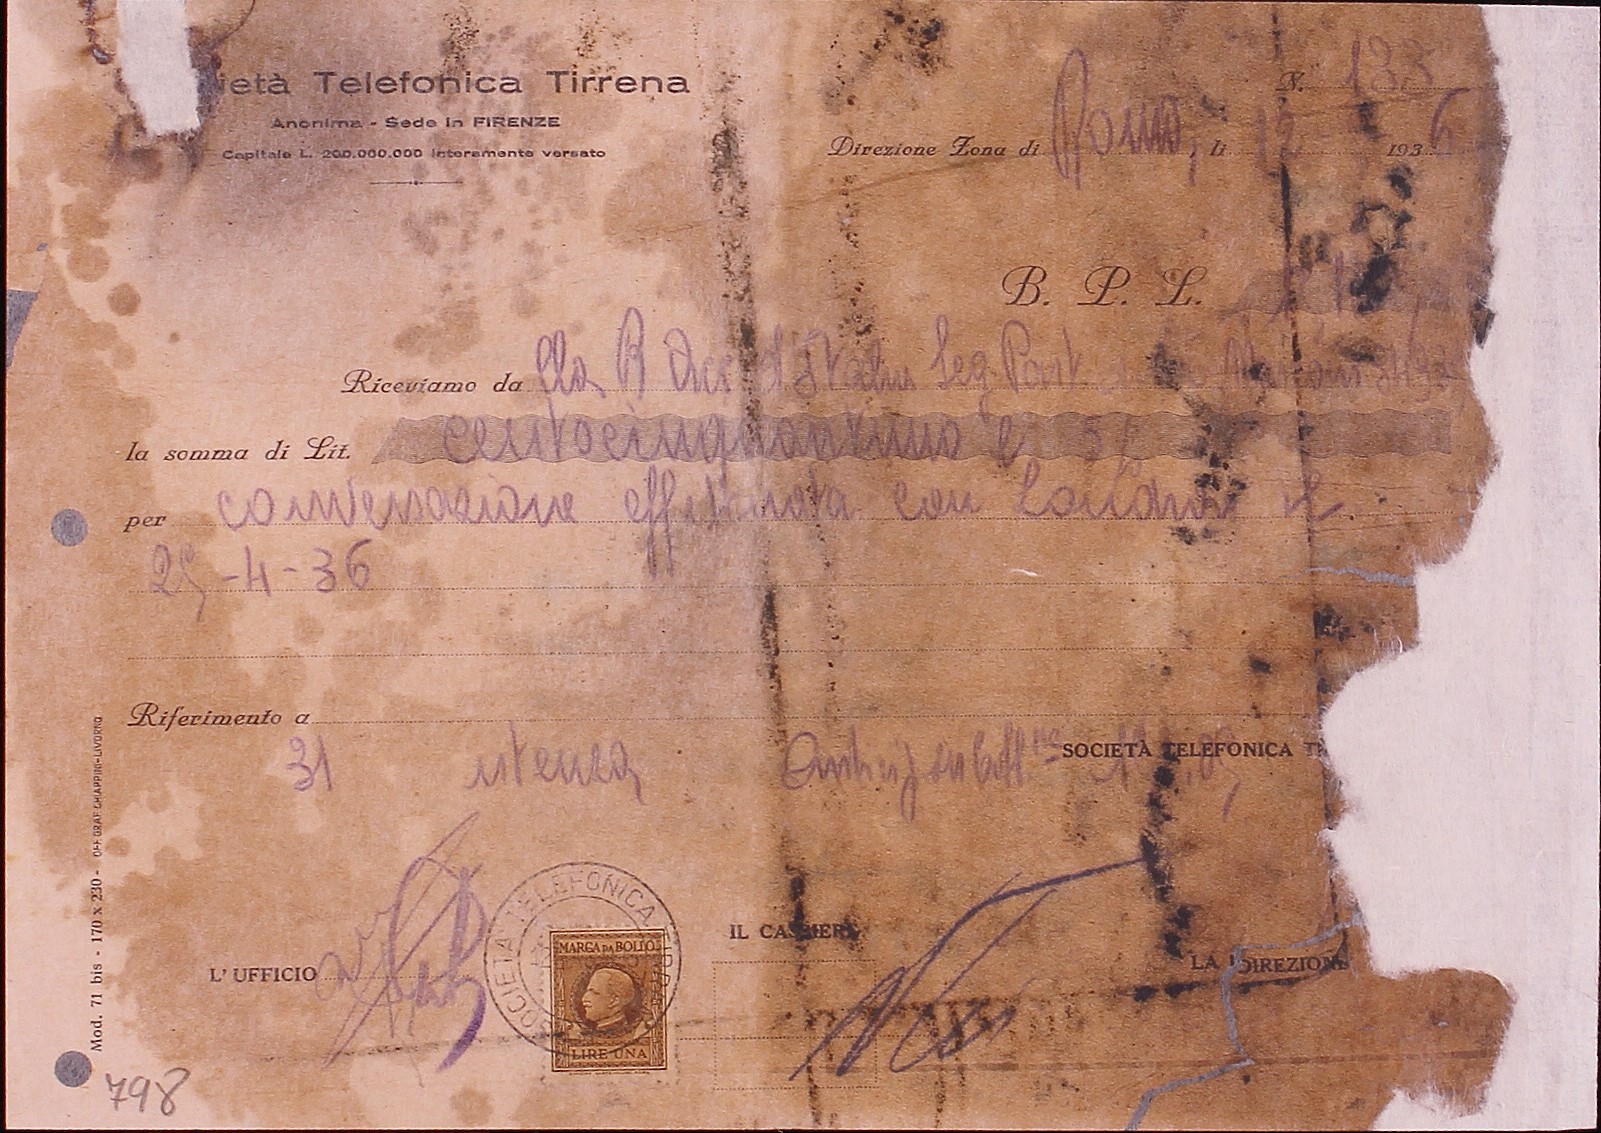 ietà Telefonica Tirrena
Anonima - Sede in FIRENZE
Capitale L. 200.000.000 interamente versato
N. 133
Direzione Zona di Roma, li 12 1936
B. P. L.
Riceviamo da lla R Acc d'Italia Seg Part
la somma di Lit. centocinquantuno e
per conversazione effettuata con Londra il
25-4-36
Riferimento a
31 utenza
SOCIETÀ TELEFONICA T
L' UFFICIO
IL CASSIERE
LA DIREZIONE
SOCIETA TELEFONICA TIRRENA
MARCA DA BOLLO
LIRE UNA
Mod. 71 bis - 170 x 230 - OFF. GRAF. CHIAPPINI-LIVORNO
798